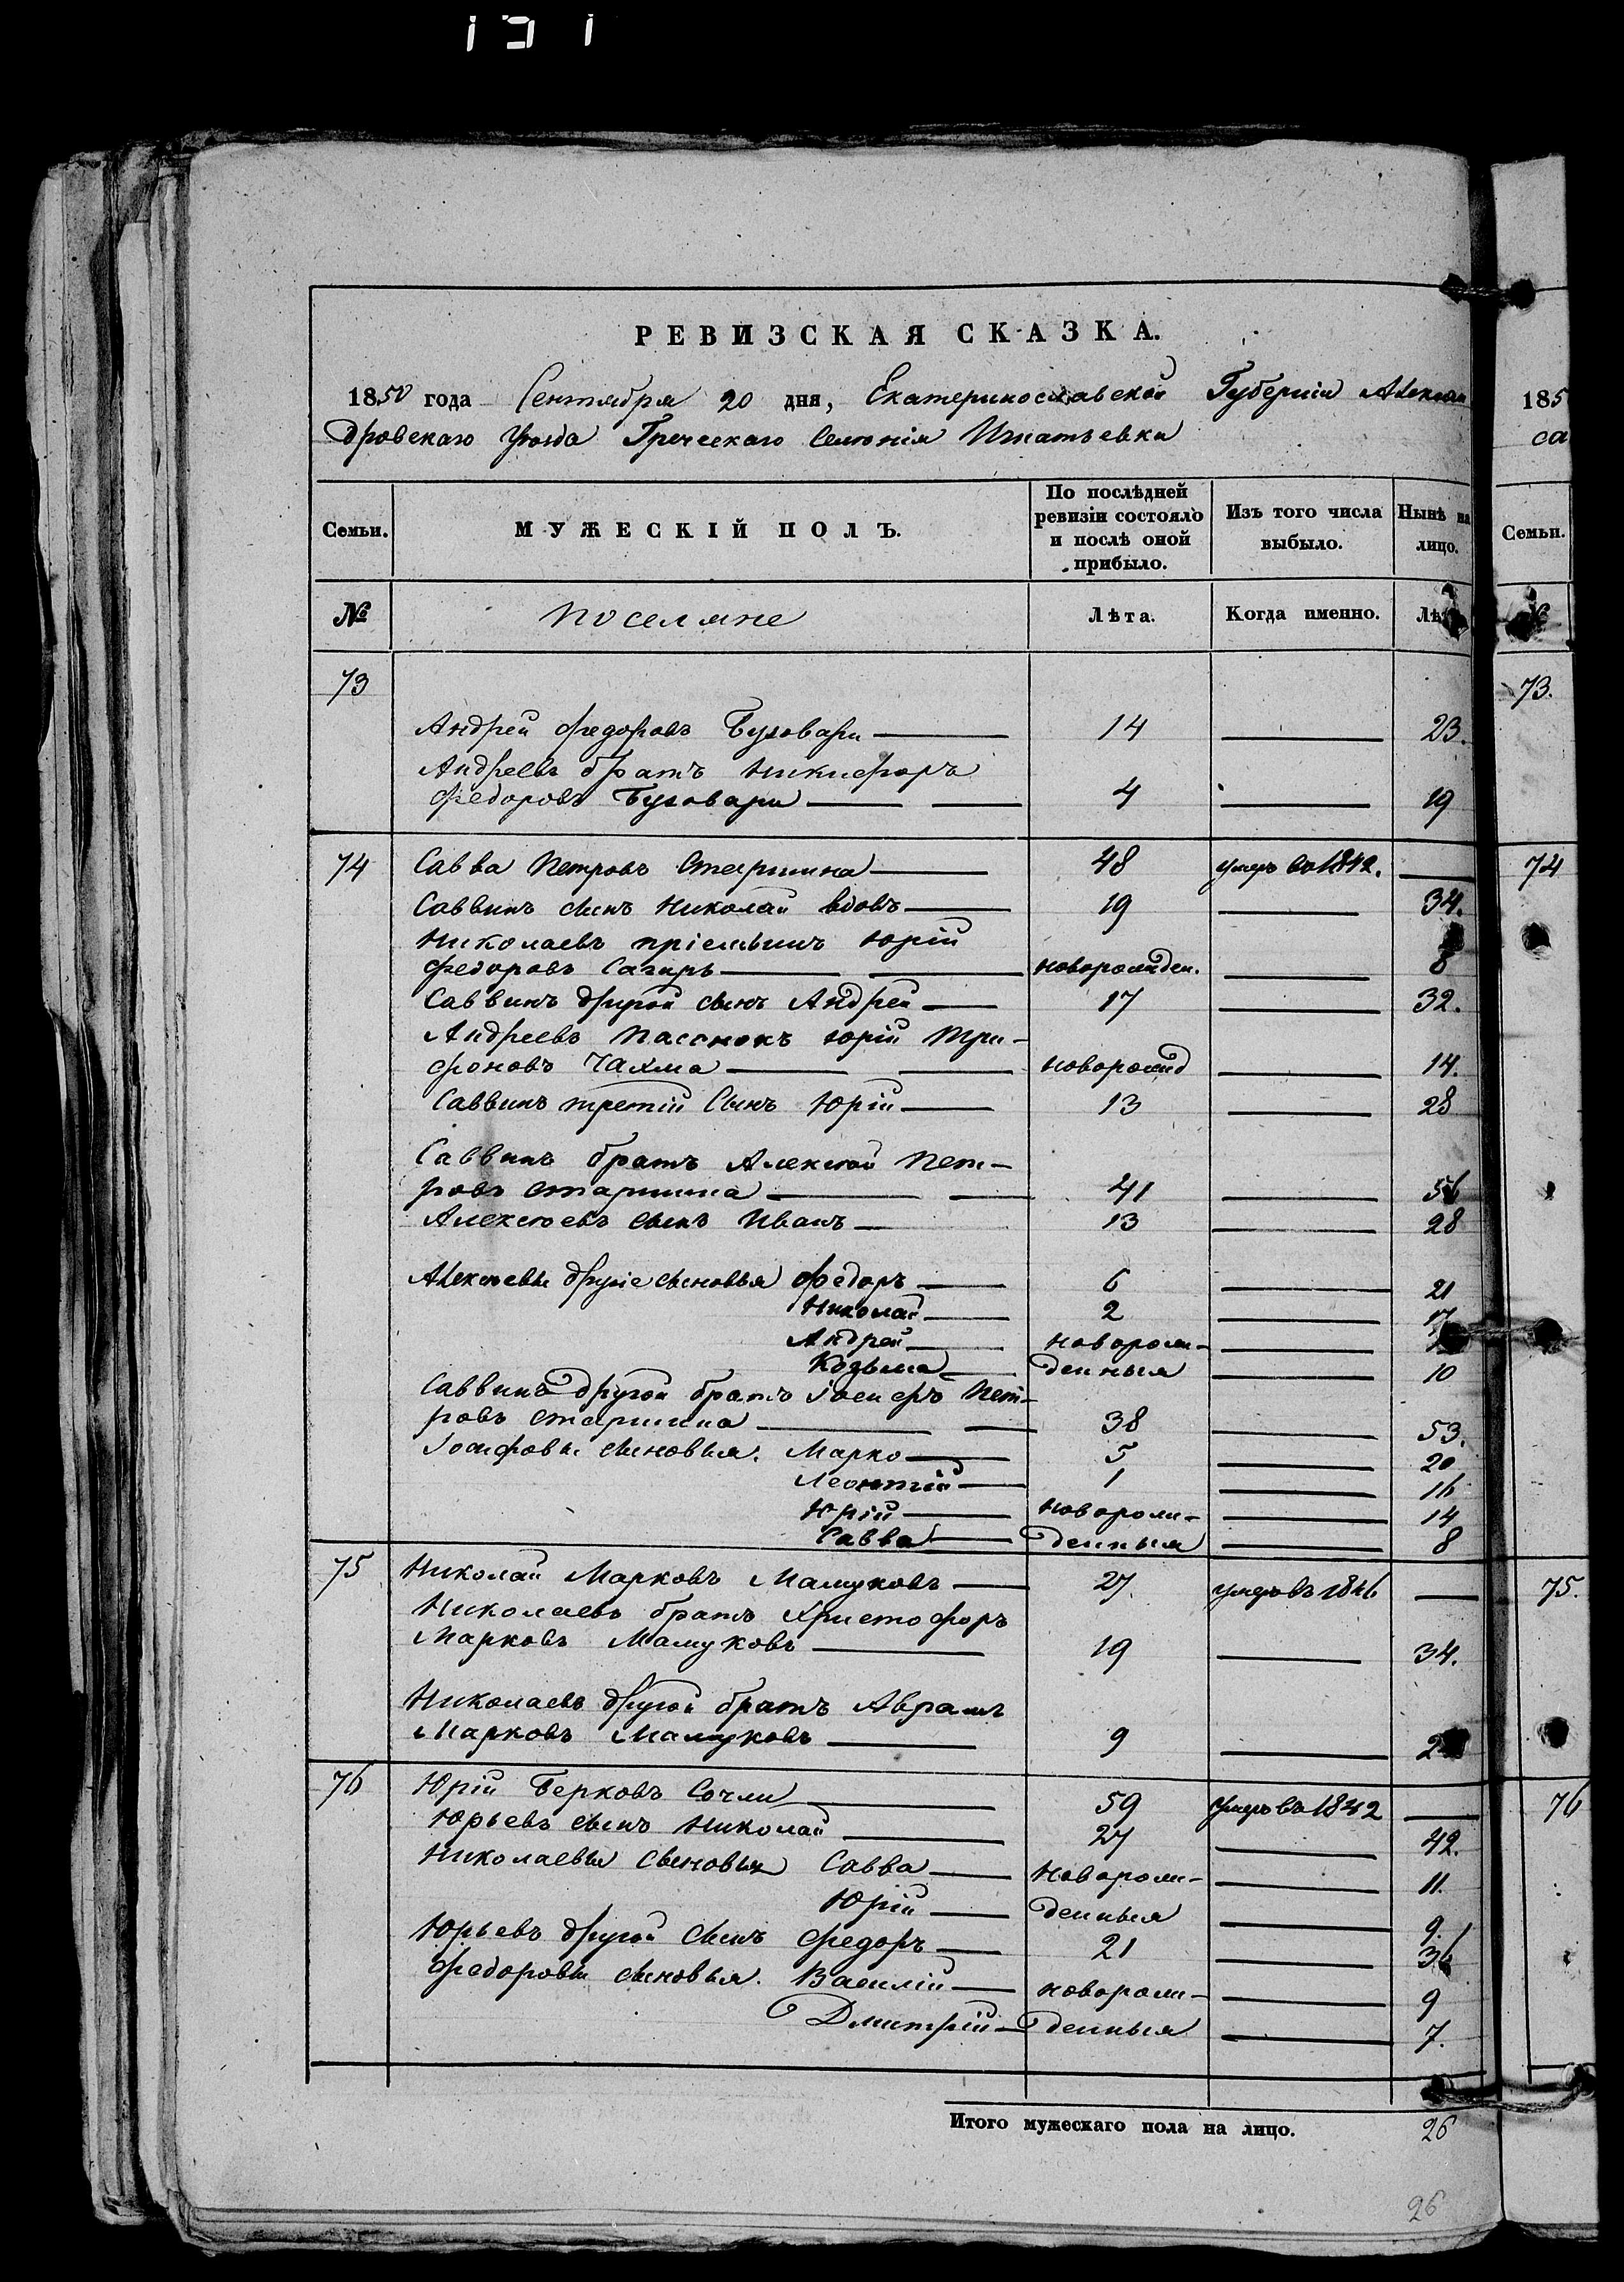 РЕВИЗСКАЯ СКАЗКА.
1850 года Сентября 20 дня, Екатеринославской Губерніи Алексан
дровскаго Уѣзда Греческаго Селенія Игнатьевки
Семьи. МУЖЕСКІЙ ПОЛЪ. По послѣдней ревизіи состояло и послѣ оной прибыло. Изъ того числа выбыло. Нынѣ на лицо.
№ поселяне Лѣта. Когда именно. Лѣта
73
Андрей Федоровъ Буговари 14 23.
Андреевъ братъ Никифоръ
Федоровъ Буговари 4 19
74 Савва Петровъ Старшина 48 умеръ въ 1842.
Саввинъ сынъ Николай вдовъ 19 34.
Николаевъ пріемышъ Юрій
Федоровъ Сагиръ новорожден. 8
Саввинъ другой сынъ Андрей 17 32.
Андреевъ пасенокъ Юрій Три-
фоновъ Чахма новорожд 14.
Саввинъ третій Сынъ Юрій 13 28
Саввинъ братъ Алексѣй Пет-
ровъ Старшина 41 56
Алексѣевъ сынъ Иванъ 13 28
Алексѣевы другіе сыновья Федоръ 6 21
Николай 2 17
Андрей новорож-
Козьма денныя 10
Саввинъ другой братъ Іосифъ Пет-
ровъ Старшина 38 53.
Іосифовы сыновья. Марко 5 20
Леонтій 1 16
Юрій новорож- 14
Савва денныя 8
75 Николай Марковъ Мамуковъ 27. умеръ въ 1846
Николаевъ братъ Христофоръ
Марковъ Мамуковъ 19 34.
Николаевъ другой братъ Аврамъ
Марковъ Мамуковъ 9
76 Юрій Берковъ Сочли 59 Умеръ въ 1842
Юрьевъ сынъ Николай 27 42.
Николаевы сыновья Савва новорож- 11.
Юрій денныя 9.
Юрьевъ другой сынъ Федоръ 21 36
Федоровы сыновья. Василій новорож- 9
Дмитрій денныя 7.
Итого мужескаго пола на лицо. 26
26
185
са
Семьи.
73.
74
75.
76